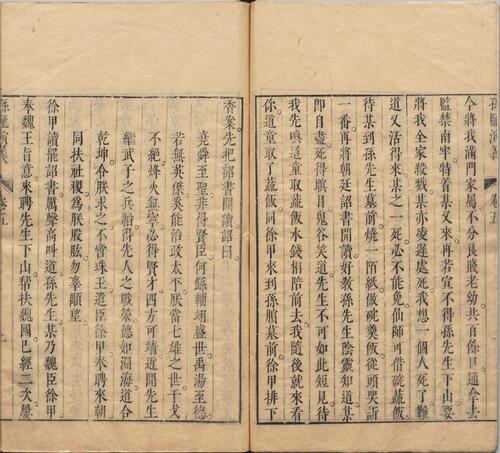 孫龐演義 卷五
今將我滿門家屬不分良賤老幼共百餘口通拿去
監禁南牢特着某又來再若宣不得孫先生下山要
將我全家殺戮某亦凌遲處死我想一個人死了難
道又活得來某之一死必不能免仙師可借碗蔬飯
待某到孫先生墓前燒一陌紙做碗羹飯從頭哭訴
一番再將朝廷詔書開讀好教孫先生陰靈知道某
即自盡死得瞑目鬼谷笑道先生不可如此短見待
我先喚道童取蔬飯水錢相陪前去我隨後就來看
你道童取了蔬飯同徐甲來到孫臏墓前徐甲排下
香案先把詔書開讀詔曰
堯舜至聖非得賢臣何繇輔翊盛世禹湯至德
若無英傑奚能治政太平朕當七雄之世干戈
不絕烽火無寧必得賢才四方可靖近聞先生
繼武子之兵給得先人之戰策德如淵海道合
乾坤令朕求之不啻珠玉遣臣徐甲奉聘來朝
同扶社稷爲朕股肱勿辜顒望
徐甲讀罷詔書厲聲高叫道孫先生某乃魏臣徐甲
奉魏王旨意來聘先生下山帮扶魏國已經三次屢
孫龐演義 卷五